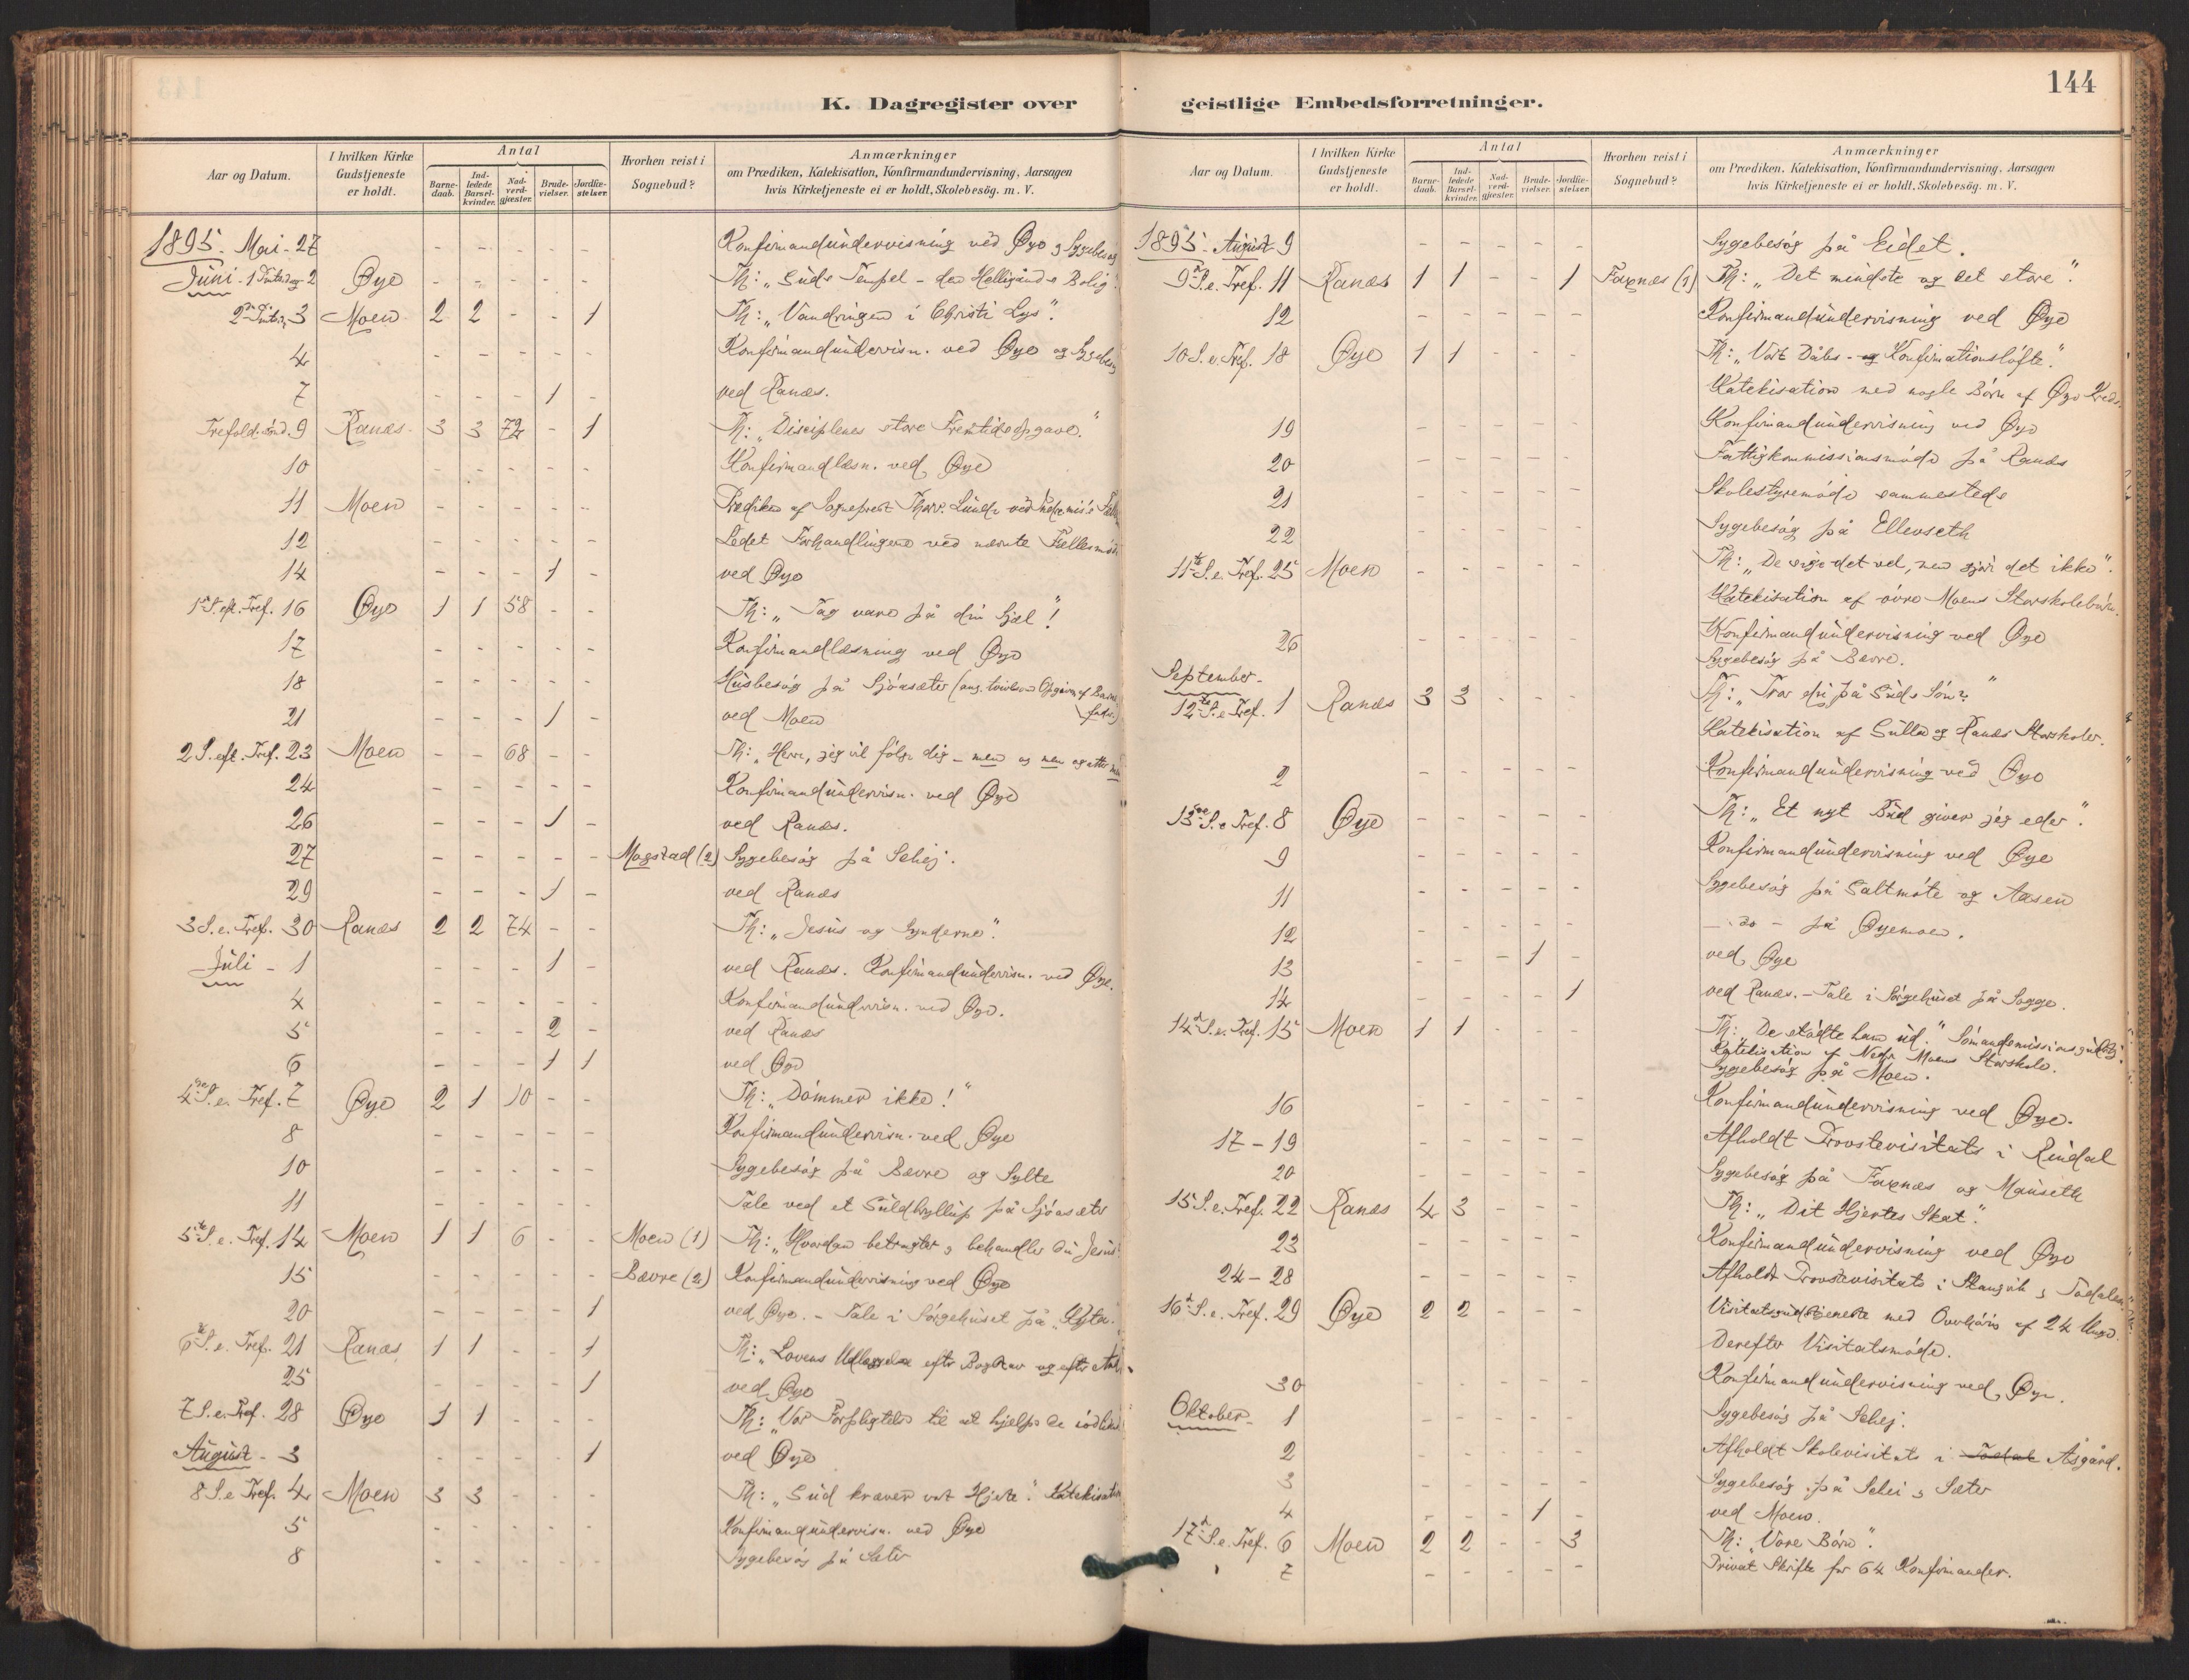 144
K. Dagregister over geistlige Embedsforretninger.
Aar og Datum.
I hvilken Kirke Gudstjeneste er holdt.
Antal
Barne-daab.
Ind-ledede Barsel-kvinder.
Nad-verd-gjæster.
Brude-vielser.
Jordfæ-stelser.
Hvorhen reist i Sognebud?
Anmærkninger
om Prædiken, Katekisation, Konfirmandundervisning, Aarsagen
hvis Kirketjeneste ei er holdt, Skolebesög. m. V.
1895. Mai - 27 - - - - - Konfirmandundervisning ved Øye & Sygebesøg
Juni - 1 Pintsedag 2 Øye - - - - - Th: "Guds Tempel - den Helligånds Bolig".
2den Pintsd. 3 Moen 2 2 - - 1 Th: "Vandringen i Christi Lys".
4 - - - - - Konfirmandundervisn. ved Øye og Sygebesøg
7 - - - 1 - ved Ranæs.
Trefold. sønd. 9 Ranæs. 3 3 72 - 1 Th: "Disciplenes store Fremtidsopgave."
10 - - - - - Konfirmandlæsn. ved Øye
11 Moen - - - - - Prædiken af Sogneprest Thorv. Lunde ved Indremis.s
12 - - - - - Ledet Forhandlingene ved nævnte Fællesmøde
14 - - - 1 - ved Øye
1ste S. eft. Tref. 16 Øye 1 1 58 - - Th: "Tag vare på din Sjæl!
17 - - - - - Konfirmandlæsning ved Øye
18 - - - - - Husbesøg på Sjøasæter (ang. tvivlsom Opgiven af Barnefader.)
21 - - - 1 - ved Moen
2 S. eft. Tref. 23 Moen - - 68 - - Th: "Herre, jeg vil følge dig - men og men og atter men
24 - - - - - Konfirmandundervisn. ved Øye
26 - - - 1 - ved Ranæs.
27 - - - - - Mogstad (2) Sygebesøg på Schej.
29 - - - 1 - ved Ranæs
3 S. e. Tref. 30 Ranæs 2 2 74 - - Th: "Jesus og Synderne".
Juli - 1 - - - 1 - ved Ranæs. Konfirmandundervisn. ved Øye.
4 - - - - - Konfirmandundervisn. ved Øye.
5 - - - 2 - ved Ranæs
6 - - - 1 1 ved Øye
4de S. e. Tref. 7 Øye 2 1 10 - - Th: "Dømmer ikke!"
8 - - - - - Konfirmandundervisn. ved Øye
10 - - - - - Sygebesøg på Bævre og Sylte
11 - - - - - Tale ved et Guldbryllup på Sjøasæter
5te S. e. Tref. 14 Moen 1 1 6 - - Moen (1) Th: "Hvordan betragter & behandler du Jesus?
15 - - - - - Bævre (2) Konfirmandundervisning ved Øye
20 - - - - 1 ved Øye. - Tale i Sørgehuset på
6te S. e. Tref. 21 Ranæs 1 1 - - 1 Th: "Lovens Udlæggelse efter Bogstav og efter
25 - - - - 1 ved Øye
7 S. e. Tref. 28 Øye 1 1 - - - Th: "Vor Forpligtelse til at hjelpe de
August - 3 - - - - 1 ved Øye
8 S. e. Tref. 4 Moen 3 3 - - - Th: "Gud kræver vort Hjerte." Katekisation
5 - - - - - Konfirmandundervisn. ved Øye
8 - - - - - Sygebesøg på Sæter
Aar og Datum.
I hvilken Kirke Gudstjeneste er holdt.
Antal
Barne-daab.
Ind-ledede Barsel-kvinder.
Nad-verd-gjæster.
Brude-vielser.
Jordfæ-stelser
Hvorhen reist i Sognebud?
Anmærkninger
om Prædiken, Katekisation, Konfirmandundervisning, Aarsagen
hvis Kirketjeneste ei er holdt. Skolebesög. m. V.
1895. August 9 - - - - - Sygebesøg på Eidet.
9de S. e. Tref. 11 Ranæs 1 1 - - 1 Foxnæs (1) Th: "Det mindste og det store".
12 - - - - - Konfirmandundervisning ved Øye
10 S. e. Tref. 18 Øye 1 1 - - - Th: "Vort Dåbs- og Konfirmationsløfte."
Katekisation med nogle Børn af Øye Kreds.
19 - - - - - Konfirmandundervisning ved Øye
20 - - - - - Fattigkommissionsmøde på Ranæs
21 - - - - - Skolestyremøde sammesteds
22 - - - - - Sygebesøg på Ellevseth
11te S. e. Tref. 25 Moen - - - - - Th: "De sige det vel, men gjøre det ikke".
Katekisation af øvre Moens Storskolebørn.
26 - - - - - Konfirmandundervisning ved Øye
Sygebesøg på Bævre.
September -
12te S. e. Tref. 1 Ranæs 3 3 - - - Th: "Tror du på Guds Søn?"
Katekisation af Gulla og Ranæs Storskoler.
2 - - - - - Konfirmandundervisning ved Øye
13de S. e. Tref. 8 Øye - - - - - Th: "Et nyt Bud giver jeg eder".
9 - - - - - Konfirmandundervisning ved Øye
11 - - - - - Sygebesøg på Saltmóte og Aasen
12 - - - - - - do - på Øyemoen.
13 - - - 1 - ved Øye
14 - - - - 1 ved Ranæs. - Tale i Sørgehuset på Sogge.
14de S. e. Tref. 15 Moen 1 1 - - - Th: "De stødte ham ud." Sømandsmissionsgudstj.
Katekisation af Nedre Moens Storskole.
Sygebesøg på Moen.
16 - - - - - Konfirmandundervisning ved Øye.
17 - 19 - - - - - Afholdt Provstevisitats i Rindal
20 - - - - - Sygebesøg på Foxnæs og Mauseth
15 S. e. Tref. 22 Ranæs 4 3 - - - Th: "Dit Hjertes Skat".
23 - - - - - Konfirmandundervisning ved Øye
24 - 28 - - - - - Afholdt Provstevisitats i Stangvik & Todalen
16de S. e. Tref. 29 Øye 2 2 - - - Visitatsgudstjeneste med Overhøring af 24 Unge.
Derefter Visitatsmøde.
30 - - - - - Konfirmandundervisning ved Øye.
Oktober - 1 - - - - - Sygebesøg på Schej.
2 - - - - - Afholdt Skolevisitats i Todal Åsgård.
3 - - - - - Sygebesøg på Schei & Sæter
4 - - - 1 - ved Moen.
17de S. e. Tref. 6 Moen 2 2 - - 3 Th: "Vore Børn".
7 - - - - - Privat Skrifte for 64 Konfirmander.